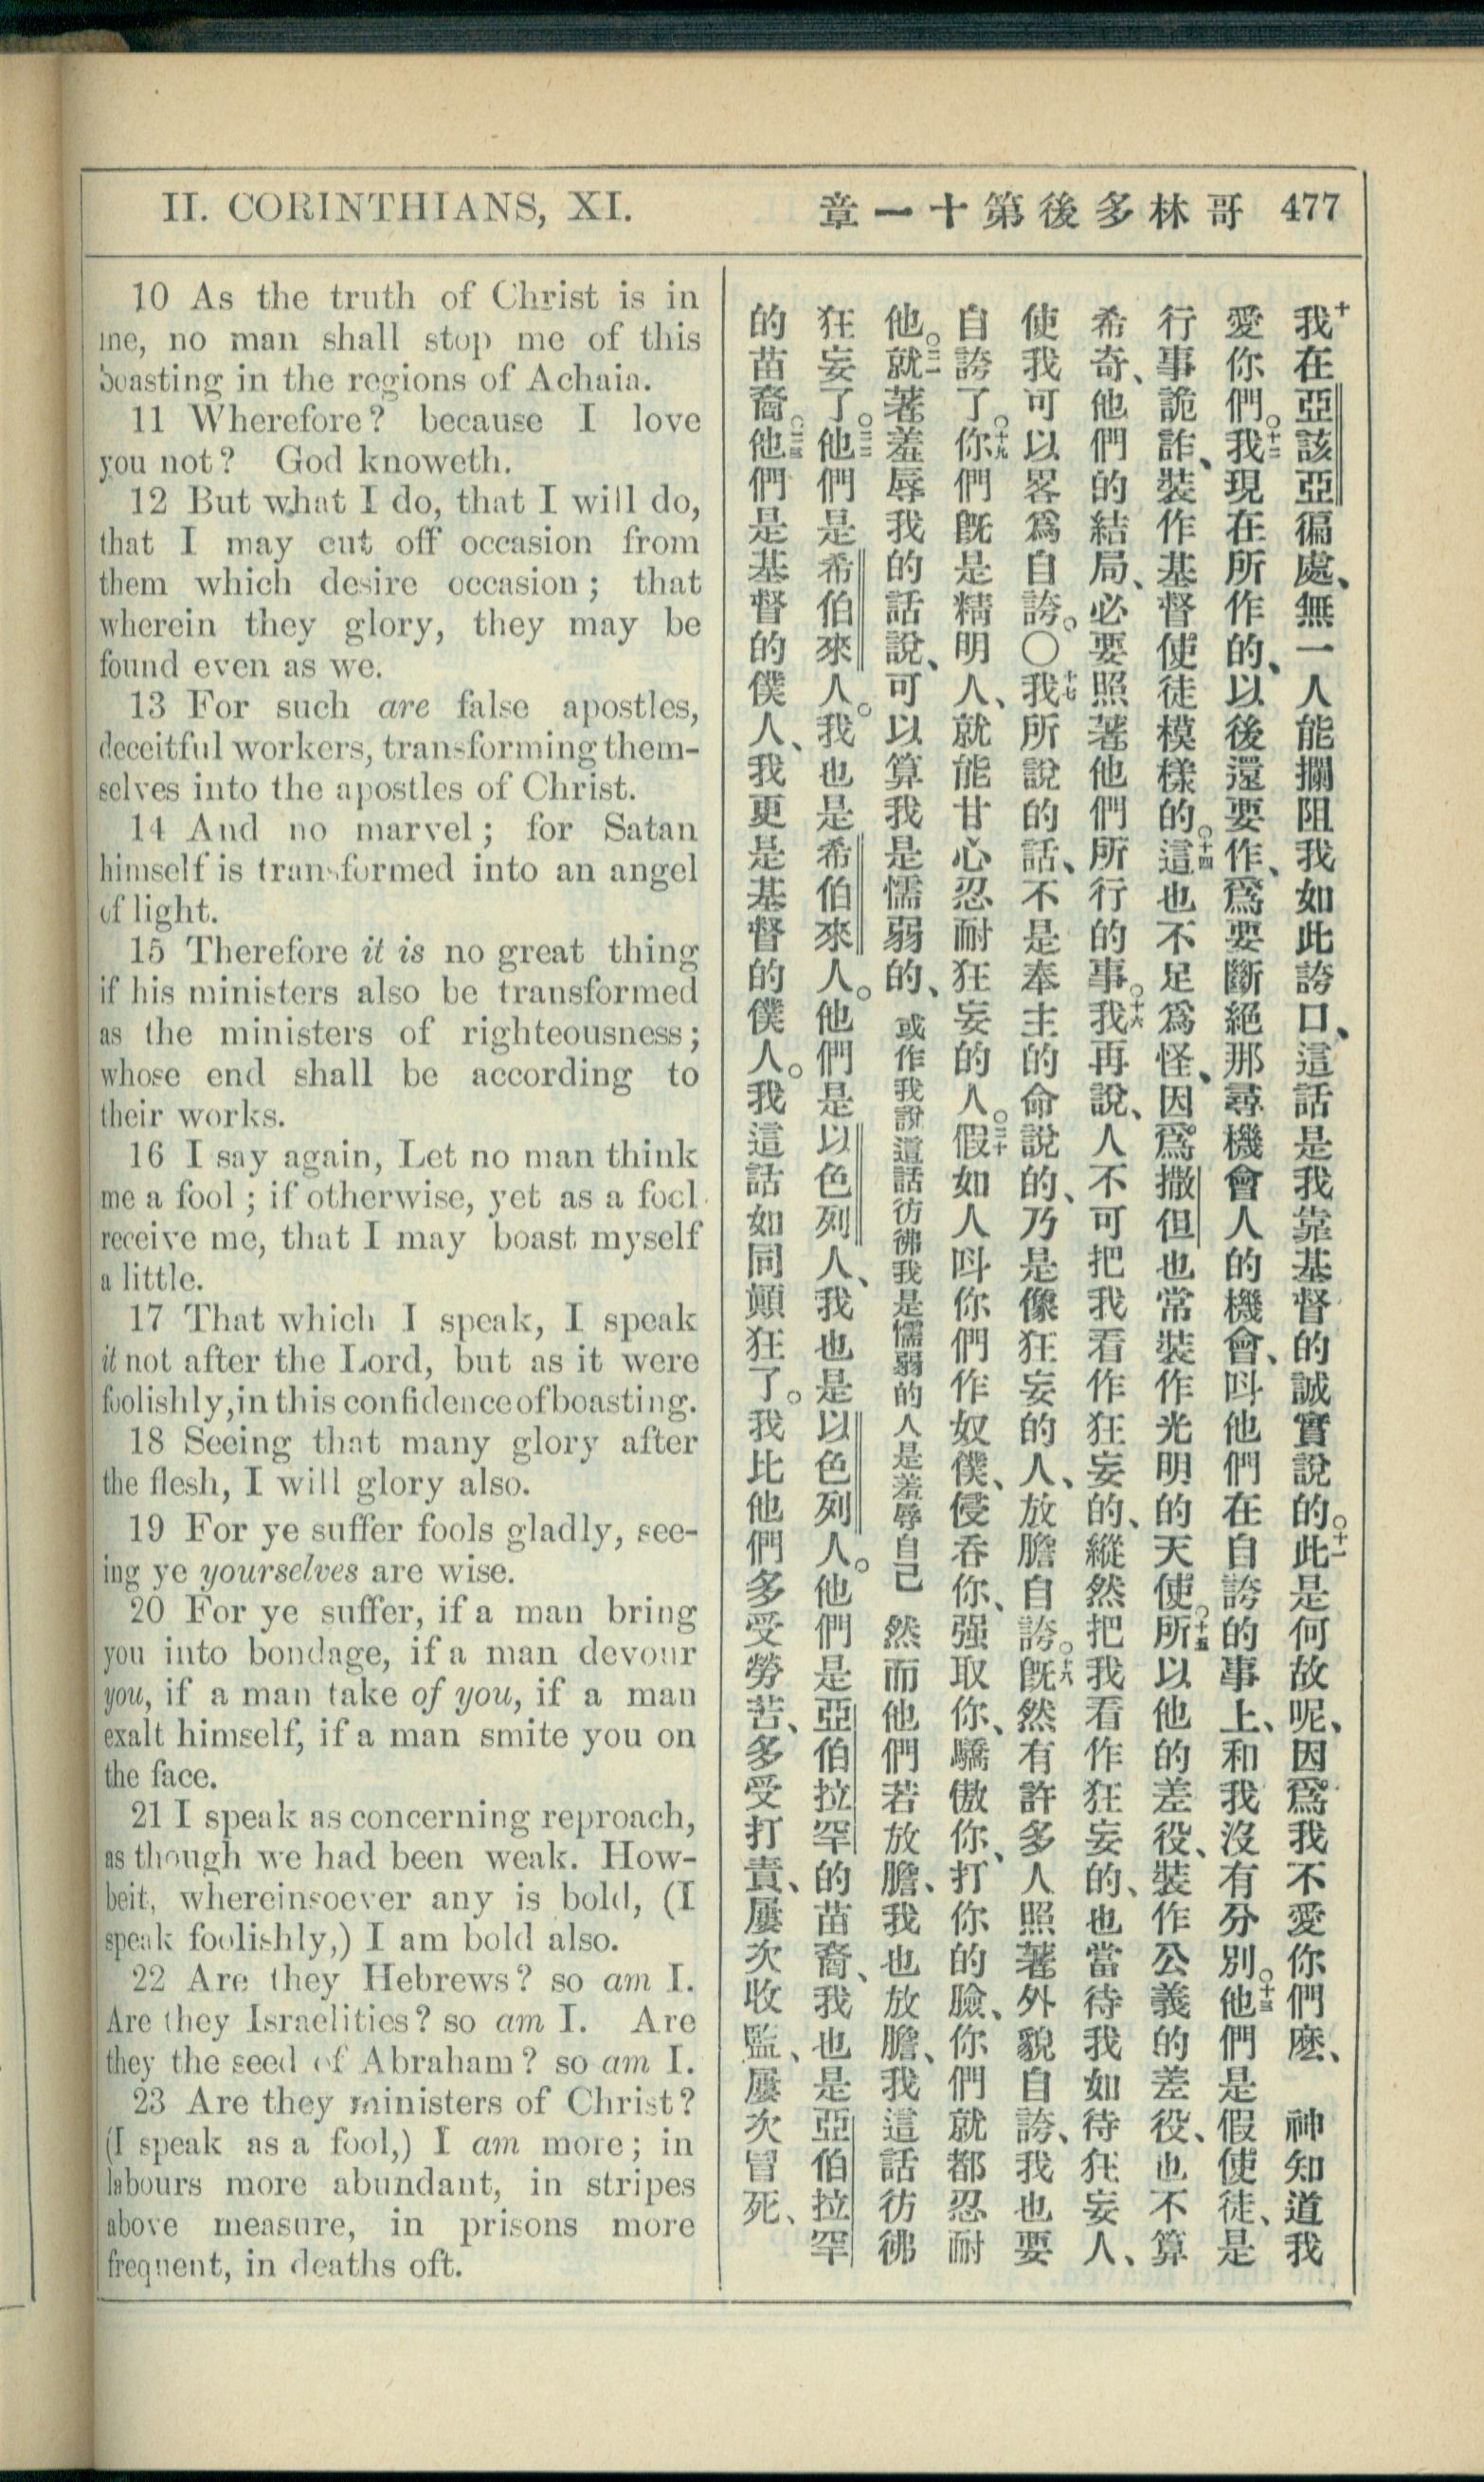 II. CORINTHIANS, XI.
章一十第後多林哥 477
10 As the truth of Christ is in
me, no man shall stop me of this
boasting in the regions of Achaia.
11 Wherefore? because I love
you not? God knoweth.
12 But what I do, that I will do,
that I may cut off occasion from
them which desire occasion; that
wherein they glory, they may be
found even as we.
13 For such are false apostles,
deceitful workers, transforming them-
selves into the apostles of Christ.
14 And no marvel; for Satan
himself is transformed into an angel
of light.
15 Therefore it is no great thing
if his ministers also be transformed
as the ministers of righteousness;
whose end shall be according to
their works.
16 I say again, Let no man think
me a fool; if otherwise, yet as a fool
receive me, that I may boast myself
a little.
17 That which I speak, I speak
it not after the Lord, but as it were
foolishly, in this confidence of boasting.
18 Seeing that many glory after
the flesh, I will glory also.
19 For ye suffer fools gladly, see-
ing ye yourselves are wise.
20 For ye suffer, if a man bring
you into bondage, if a man devour
you, if a man take of you, if a man
exalt himself, if a man smite you on
the face.
21 I speak as concerning reproach,
as though we had been weak. How-
beit, whereinsoever any is bold, (I
speak foolishly,) I am bold also.
22 Are they Hebrews? so am I.
Are they Israelities? so am I. Are
they the seed of Abraham? so am I.
23 Are they ministers of Christ?
(I speak as a fool,) I am more; in
labours more abundant, in stripes
above measure, in prisons more
frequent, in deaths oft.
十我在亞該亞徧處、無一人能攔阻我如此誇口、這話是我靠基督的誠實說的。十一此是何故呢、因爲我不愛你們麽、神知道我
愛你們。十二我現在所作的、以後還要作、爲要斷絕那尋機會人的機會、呌他們在自誇的事上、和我沒有分別。十三他們是假使徒、是
行事詭詐、裝作基督使徒模樣的。十四這也不足爲怪、因爲撒但也常裝作光明的天使。十五所以他的差役、裝作公義的差役、也不算
希奇、他們的結局、必要照著他們所行的事。十六我再說、人不可把我看作狂妄的、縱然把我看作狂妄的、也當待我如待狂妄人、
使我可以畧爲自誇。〇十七我所說的話、不是奉主的命說的、乃是像狂妄的人、放膽自誇。十八旣然有許多人照著外貌自誇、我也要
自誇了。十九你們旣是精明人、就能甘心忍耐狂妄的人。二十假如人呌你們作奴僕、侵吞你、强取你、驕傲你、打你的臉、你們就都忍耐
他。二一就著羞辱我的話說、可以算我是懦弱的、或作我說這話彷彿我是懦弱的人是羞辱自己然而他們若放膽、我也放膽、我這話彷彿
狂妄了。二二他們是希伯來人。我也是希伯來人。他們是以色列人、我也是以色列人。他們是亞伯拉罕的苗裔、我也是亞伯拉罕
的苗裔。二三他們是基督的僕人、我更是基督的僕人。我這話如同顚狂了。我比他們多受勞苦、多受打責、屢次收監、屢次冒死、